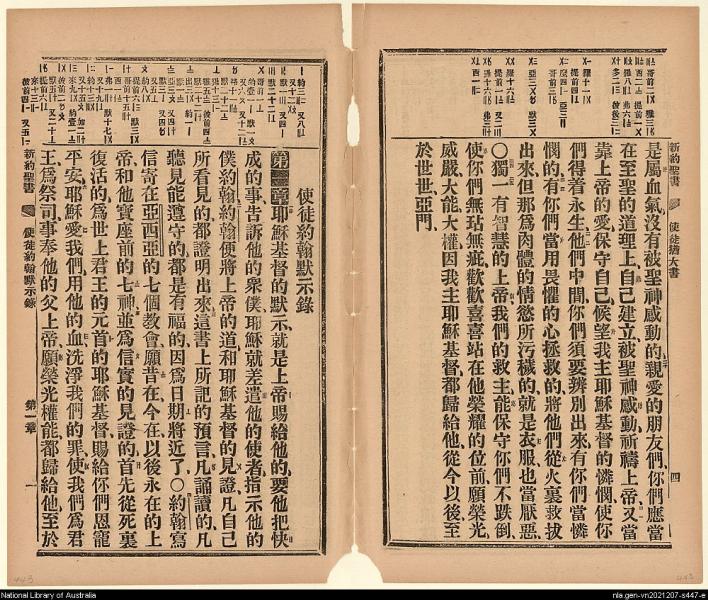 新約聖書
使徒猶大書
四
是屬血氣沒有被聖神感動的親愛的朋友們你們應當
在至聖的道理上自己建立被聖神感動祈禱上帝又當
靠上帝的愛保守自己候望我主耶穌基督的憐憫使你
們得着永生他們中間你們須要辨別出來有你們當憐
憫的有你們當用畏懼的心拯救的將他們從火裏救拔
出來但那爲肉體的情慾所污穢的就是衣服也當厭惡
〇獨一有智慧的上帝我們的救主能保守你們不跌倒
使你們無玷無疵歡歡喜喜站在他榮耀的位前願榮光
威嚴大能大權因我主耶穌基督都歸給他從今以後至
於世世亞門
使徒約翰默示錄
第一章耶穌基督的默示就是上帝賜給他的要他把快
成的事告訴他的衆僕耶穌就差遣他的使者指示他的
僕約翰約翰便將上帝的道和耶穌基督的見證凡自己
所看見的都證明出來這書上所記的預言凡誦讀的凡
聽見能遵守的都是有福的因爲日期將近了〇約翰寫
信寄在亞西亞的七個教會願昔在今在以後永在的上
帝和他寶座前的七神並爲信實的見證的首先從死裏
復活的爲世上君王的元首的耶穌基督賜給你們恩寵
平安耶穌愛我們用他的血洗淨我們的罪使我們爲君
王爲祭司事奉他的父上帝願榮光權能都歸給他至於
新約聖書
使徒約翰默示錄
第一章
一
443
443
National Library of Australia
nla.gen-vn2021207-s447-e